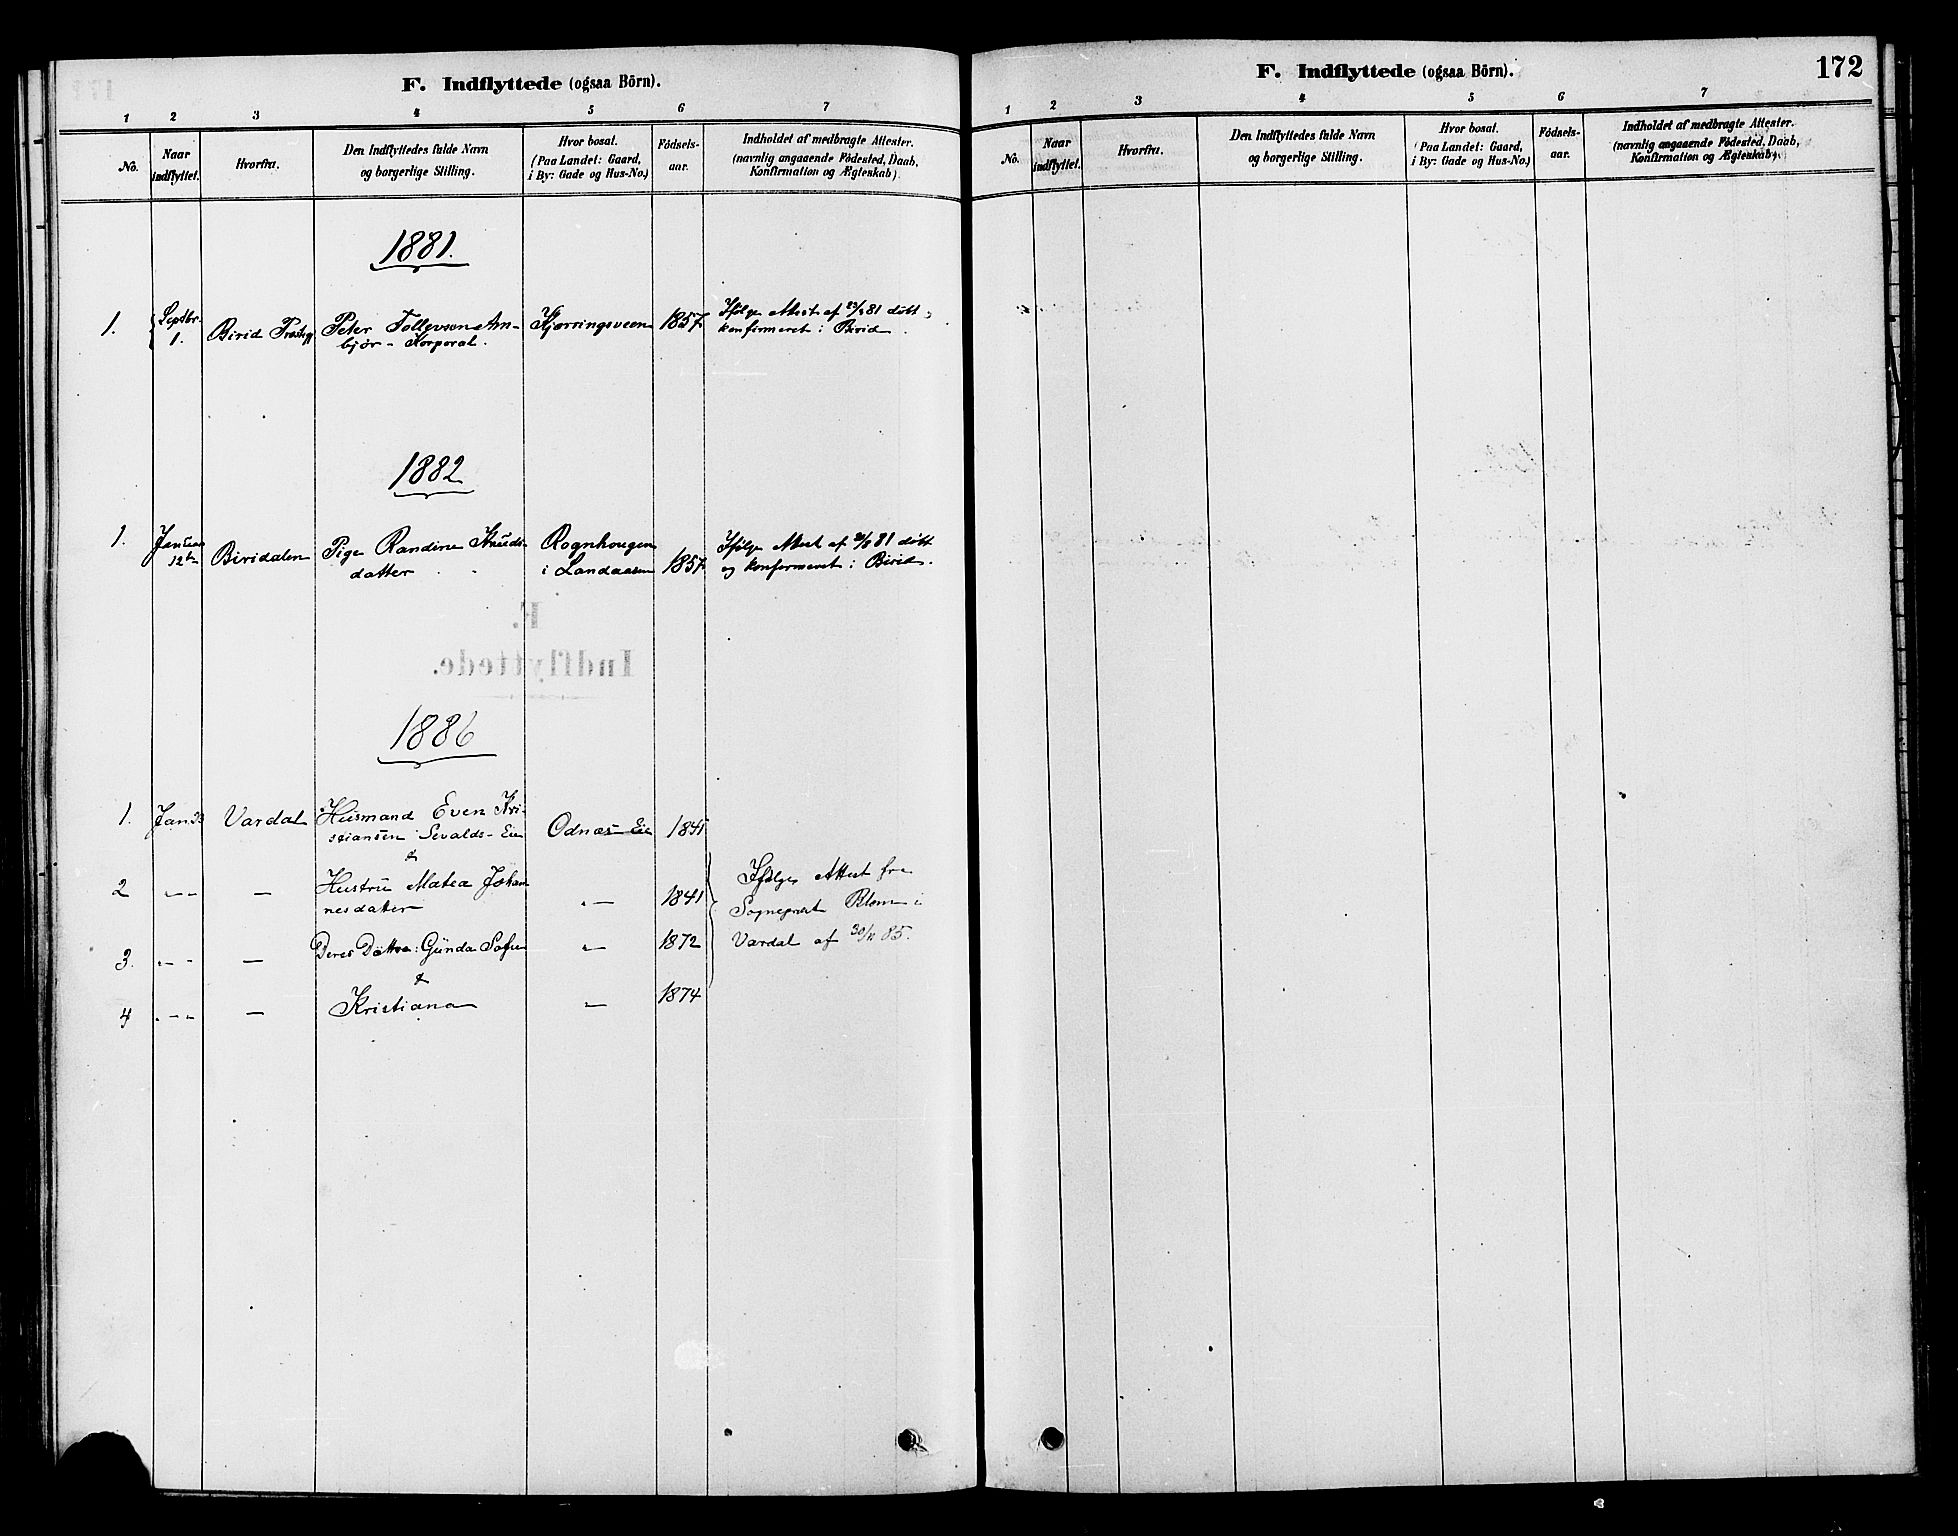 F. Indflyttede (ogsaa Börn).
1 2 3 4 5 6 7
No.
Naar
indflyttet.
Hvorfra.
Den Indflyttedes fulde Navn
og borgerlige Stilling.
Hvor bosat.
(Paa Landet: Gaard,
i By: Gade og Hus-No.)
Födsels-
aar.
Indholdet af medbragte Attester.
(navnlig angaaende Födested, Daab,
Konfirmation og Ægteskab).
1881.
1.
Septbr.
1.
Birid
Peter Tollevsen Am-
bjør - Korporal.
Kjørringsveen
1857
Ifølge Attest af 81 døbt
konfirmeret i Birid.
1882
1.
Januar
12te
Biridalen
Pige Randine Knuds-
datter
Rognhougen
i Landaasen
1857
Ifølge Attest af 81 døbt
og konfirmeret i Birid.
1886
1.
Jan 23
Vardal
Husmand Even Kri-
stiansen Sevalds-Eie
&
Odnæs-Eie
1841
2
Hustru Matea Johan
nesdatter
1841
3.
Deres Døttre: Gunda Sofie
&
1872
4
Kristiana
1874
Ifølge Attest fra
Sogneprest Blom i
Vardal af 30/11 85.
F. Indflyttede (ogsaa Börn).
172
1 2 3 4 5 6 7
No.
Naar
indflyttet.
Hvorfra.
Den Indflyttedes fulde Navn
og borgerlige Stilling.
Hvor bosat.
(Paa Landet: Gaard,
i By: Gade og Hus-No.)
Födsels-
aar.
Indholdet af medbragte Attester.
(navnlig angaaende Födested, Daab,
Konfirmation og Ægteskab).